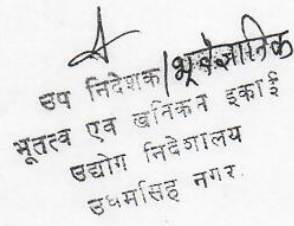 उप निदेशक/भूवैज्ञानिक
भूतत्व एव खनिकर्म इकाई
उद्योग निदेशालय
उधमसिह नगर